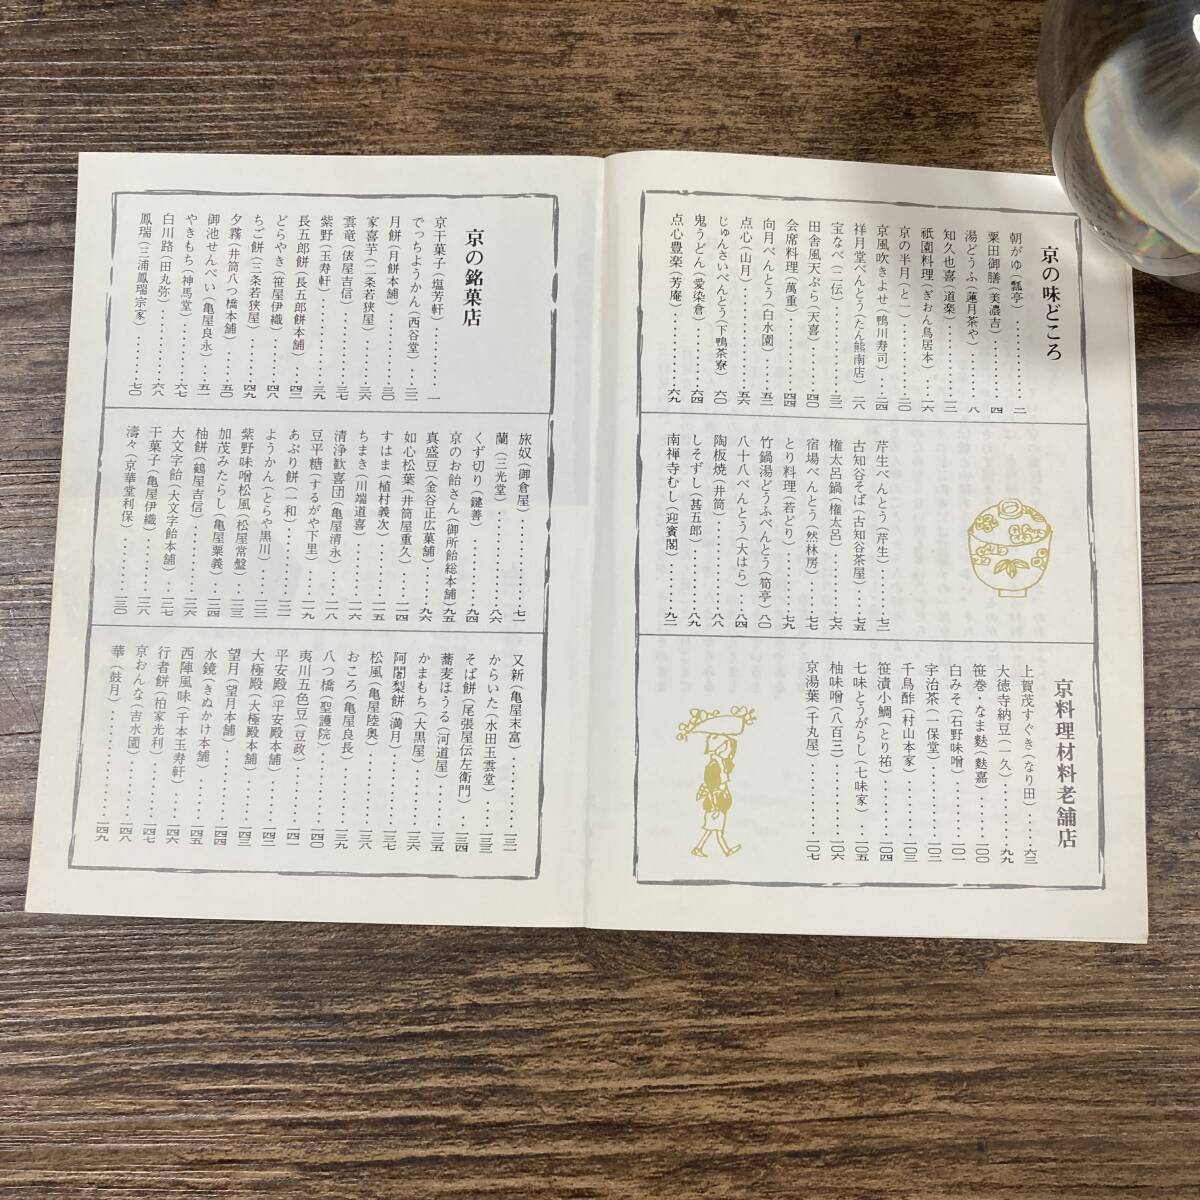 京の味どころ
朝がゆ（瓢亭）…………二
粟田御膳（美濃吉）………四
湯どうふ（蓮月茶や）………八
知久也喜（道楽）…………一三
祇園料理（ぎおん鳥居本）…一六
京の半月（と一）…………二〇
京風吹きよせ（鴨川寿司）…二四
祥月堂べんとう（たん熊南店）二八
宝なべ（二伝）…………三三
田舎風天ぷら（天喜）………四〇
会席料理（萬重）…………四四
向月べんとう（白水園）……五二
点心（山月）…………五六
じゅんさいべんとう（下鴨茶寮）六〇
鬼うどん（愛染倉）………六四
点心豊楽（芳庵）…………六九
芹生べんとう（芹生）………七二
古知谷そば（古知谷茶屋）…七五
権太呂鍋（権太呂）………七六
宿場べんとう（然林房）……七七
とり料理（若どり）………七九
竹鍋湯どうふべんとう（筍亭）八〇
八十八べんとう（大はら）…八四
陶板焼（井筒）…………八八
しそずし（甚五郎）………八九
南禅寺むし（迎賓閣）………九二
京料理材料老舗店
上賀茂すぐき（なり田）……六三
大徳寺納豆（一久）………九九
笹巻・なま麩（麩嘉）……一〇〇
白みそ（石野味噌）………一〇一
宇治茶（一保堂）…………一〇二
千鳥酢（村山本家）………一〇三
笹漬小鯛（とり祐）………一〇四
七味とうがらし（七味家）…一〇五
柚味噌（八百三）…………一〇六
京湯葉（千丸屋）…………一〇七
京の銘菓店
京干菓子（塩芳軒）…………一
でっちようかん（西谷堂）…二三
月餅（月餅本舗）…………三〇
家喜芋（二条若狭屋）………三六
雲竜（俵屋吉信）…………三七
紫野（玉寿軒）…………三九
長五郎餅（長五郎餅本舗）…四二
どらやき（笹屋伊織）………四八
ちご餅（三条若狭屋）………四九
夕霧（井筒八つ橋本舗）……五〇
御池せんべい（亀屋良永）…五一
やきもち（神馬堂）………六七
白川路（田丸弥）…………六八
鳳瑞（三浦鳳瑞宗家）………七〇
旅奴（御倉屋）…………七一
蘭（三光堂）…………八六
くず切り（鍵善）…………九四
京のお飴さん（御所飴総本舗）九五
真盛豆（金谷正広菓舗）……九六
如心松葉（井筒屋重久）…一一四
すはま（植村義次）………一一五
ちまき（川端道喜）………一一六
清浄歓喜団（亀屋清永）…一一八
豆平糖（するがや下里）…一一九
あぶり餅（一和）………一二一
ようかん（とらや黒川）…一二二
紫野味噌松風（松屋常盤）…一二三
加茂みたらし（亀屋粟義）…一二四
柚餅（鶴屋吉信）………一二六
大文字飴（大文字飴本舗）…一二七
干菓子（亀屋伊織）………一二八
濤々（京華堂利保）………一三〇
又新（亀屋末富）………一三一
からいた（水田玉雲堂）……一三三
そば餅（尾張屋伝左衛門）…一三四
蕎麦ほうる（河道屋）………一三五
かまもち（大黒屋）………一三六
阿闍梨餅（満月）…………一三七
松風（亀屋陸奥）…………一三八
おころ（亀屋良長）………一三九
八つ橋（聖護院）…………一四〇
夷川五色豆（豆政）………一四一
平安殿（平安殿本舗）……一四二
大極殿（大極殿本舗）……一四三
望月（望月本舗）…………一四四
水鏡（きぬかけ本舗）………一四五
西陣風味（千本玉寿軒）…一四六
行者餅（柏家光利）………一四七
京おんな（吉水園）………一四八
華（鼓月）…………一四九